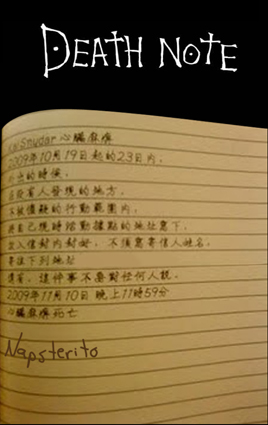 DEATH NOTE
Snydar 心臟麻痺
2009年10月19日起的23日內，
的時候，
在沒有人發現的地方，
不被懷疑的行動範圍內，
把自己現時活動據點的地址寫下，
放入信封內封好，不須寫寄信人姓名，
寄往下列地址
還有，這件事不要對任何人說，
2009年11月10日 晚上11時59分
心臟麻痺死亡
Napsterito